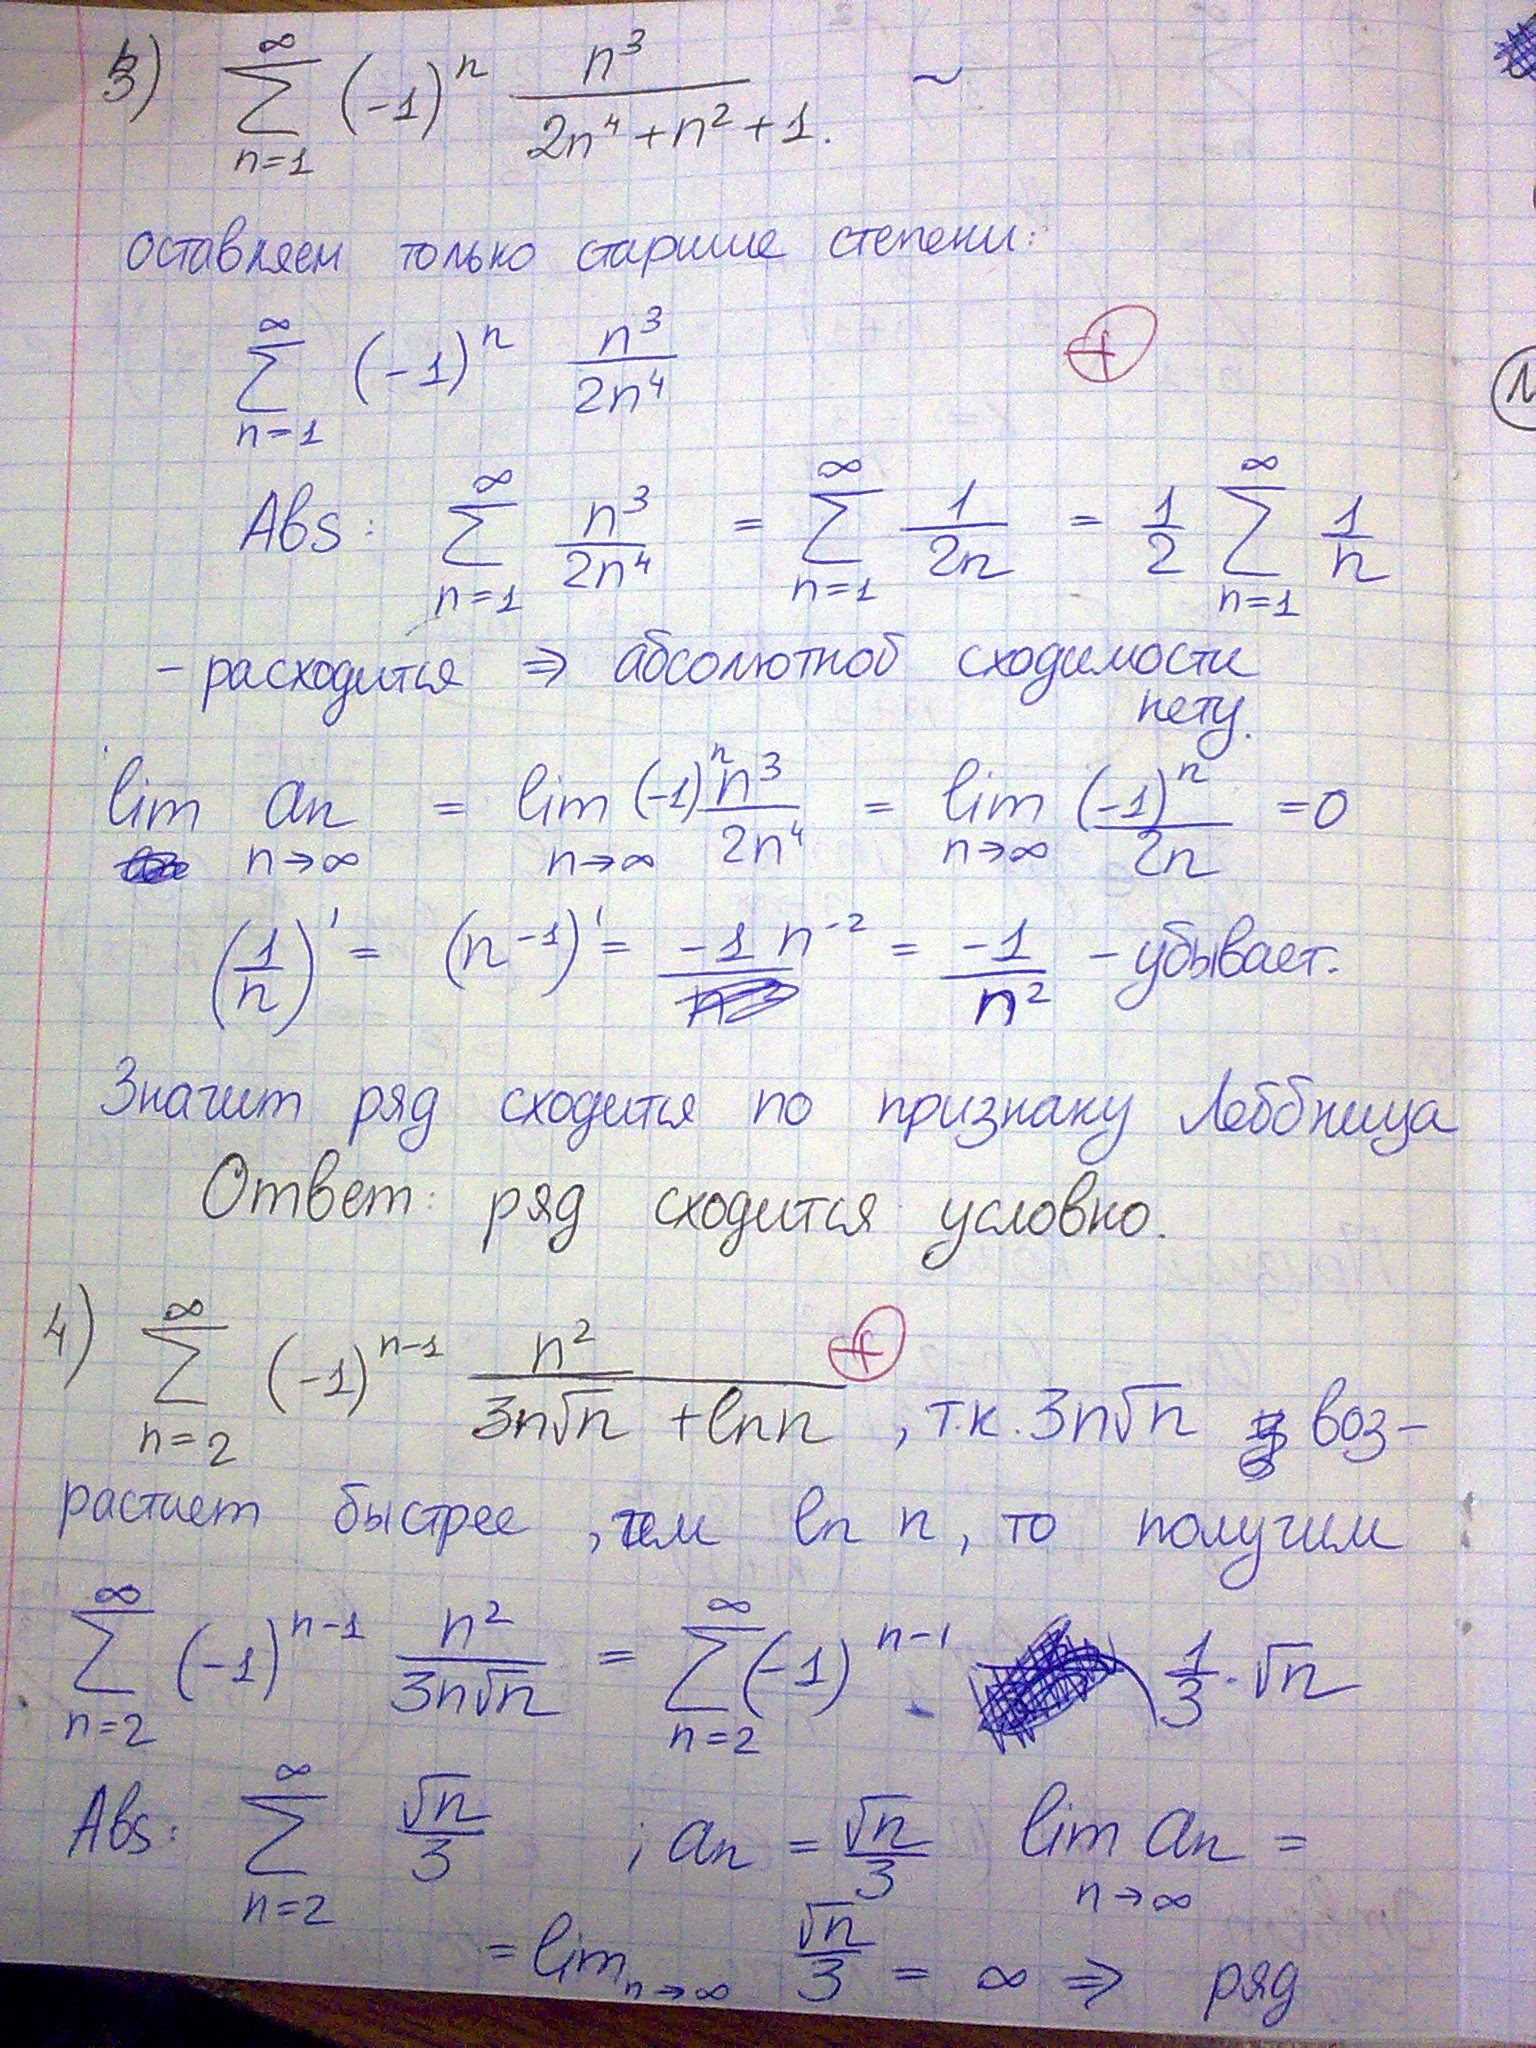 3) ∞ ∑ n=1 (-1)^n n^3 / (2n^4 + n^2 + 1). ~
Оставляем только старшие степени:
∞ ∑ n=1 (-1)^n n^3 / 2n^4
Abs: ∞ ∑ n=1 n^3 / 2n^4 = ∞ ∑ n=1 1 / 2n = 1/2 ∞ ∑ n=1 1/n
- расходится ⇒ абсолютной сходимости
нету.
lim an n→∞ = lim n→∞ (-1)^n n^3 / 2n^4 = lim n→∞ (-1)^n / 2n = 0
(1/n)' = (n^-1)' = -1 n^-2 = -1 / n^2 - убывает.
Значит ряд сходится по признаку Лейбница
Ответ: ряд сходится условно.
4) ∞ ∑ n=2 (-1)^n-1 n^2 / (3n√n + ln n), т.к. 3n√n воз-
растает быстрее, чем ln n, то получим
∞ ∑ n=2 (-1)^n-1 n^2 / 3n√n = ∞ ∑ n=2 (-1)^n-1 1/3 · √n
Abs: ∞ ∑ n=2 √n / 3 ; an = √n / 3 lim n→∞ an =
= lim n→∞ √n / 3 = ∞ ⇒ ряд